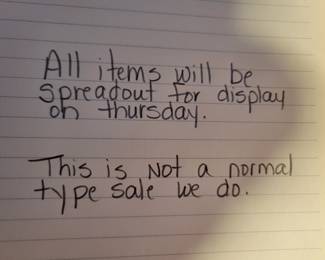 All items will be
spreadout for display
on thursday.
This is Not a normal
type sale we do.